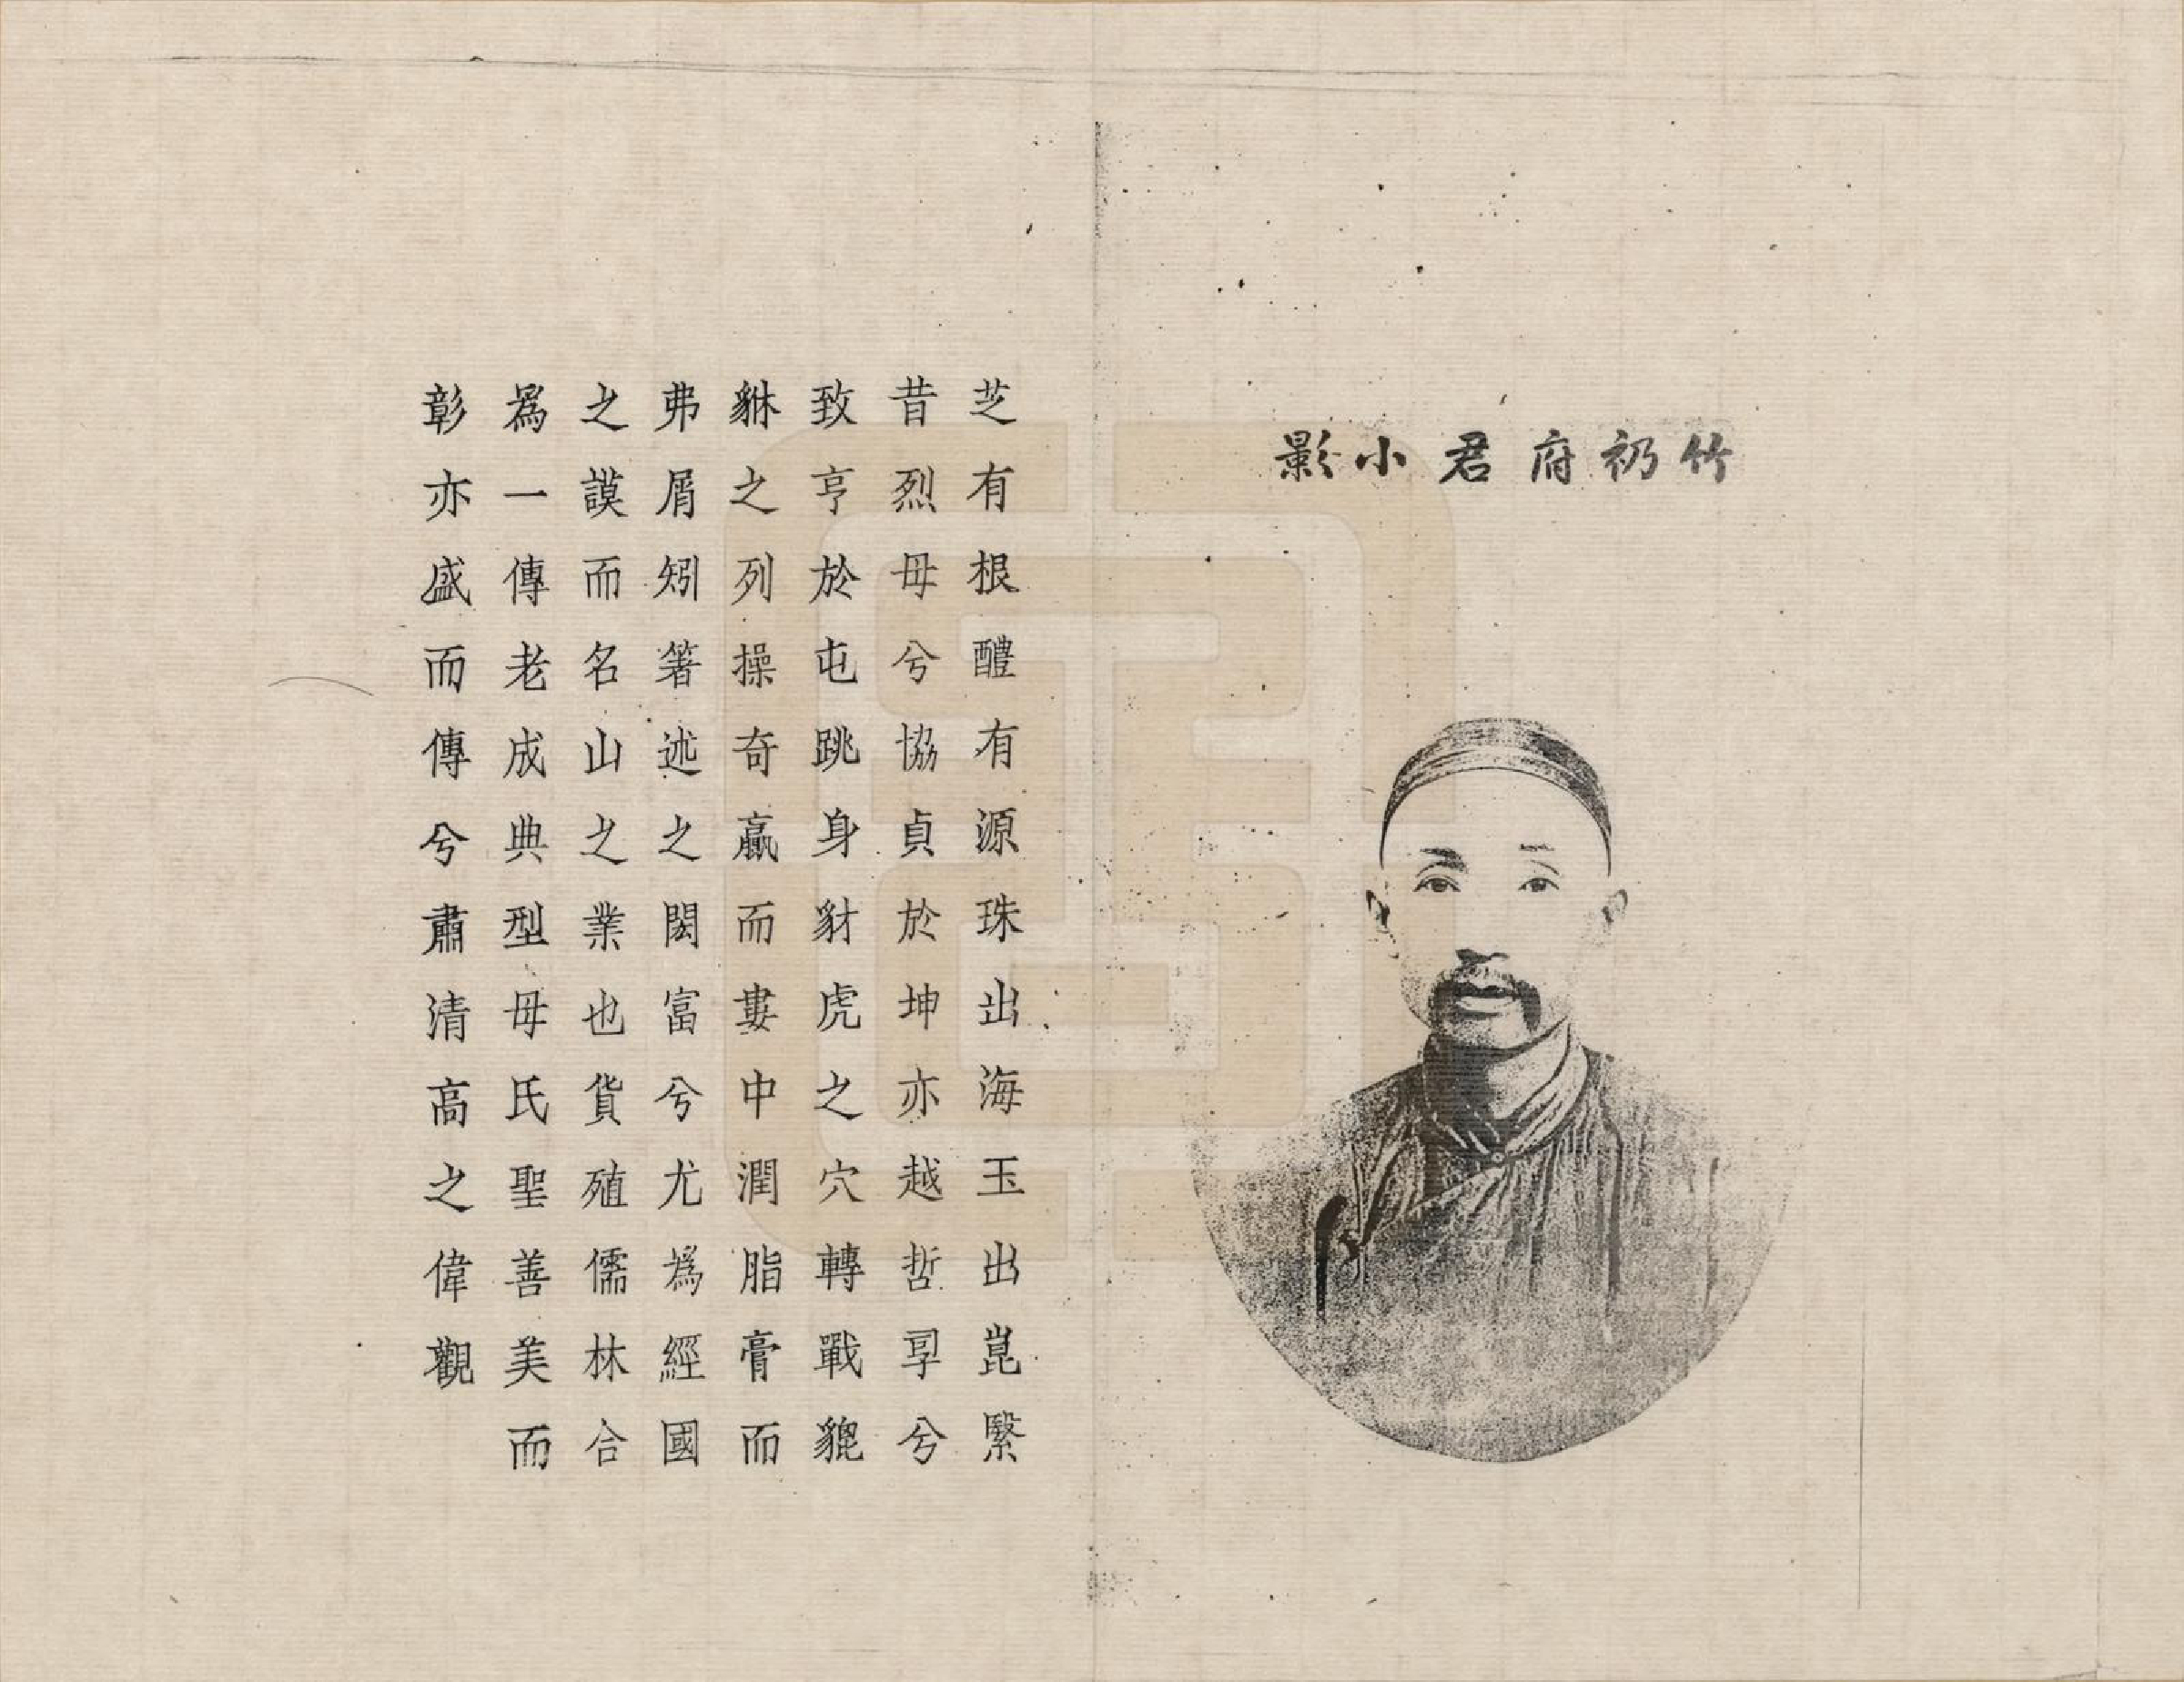 竹礽府君小影
芝有根醴有源珠出海玉出崑緊
昔烈毋兮協貞於坤亦越哲㝒兮
致亨於屯跳身豺虎之穴轉戰貔
貅之列操奇贏而婁中潤脂膏而
弗屑矧箸述之閎富兮尤為經國
之謨而名山之業也貨殖儒林合
為一傳老成典型毋氏聖善美而
彰亦盛而傳兮肅清高之偉觀